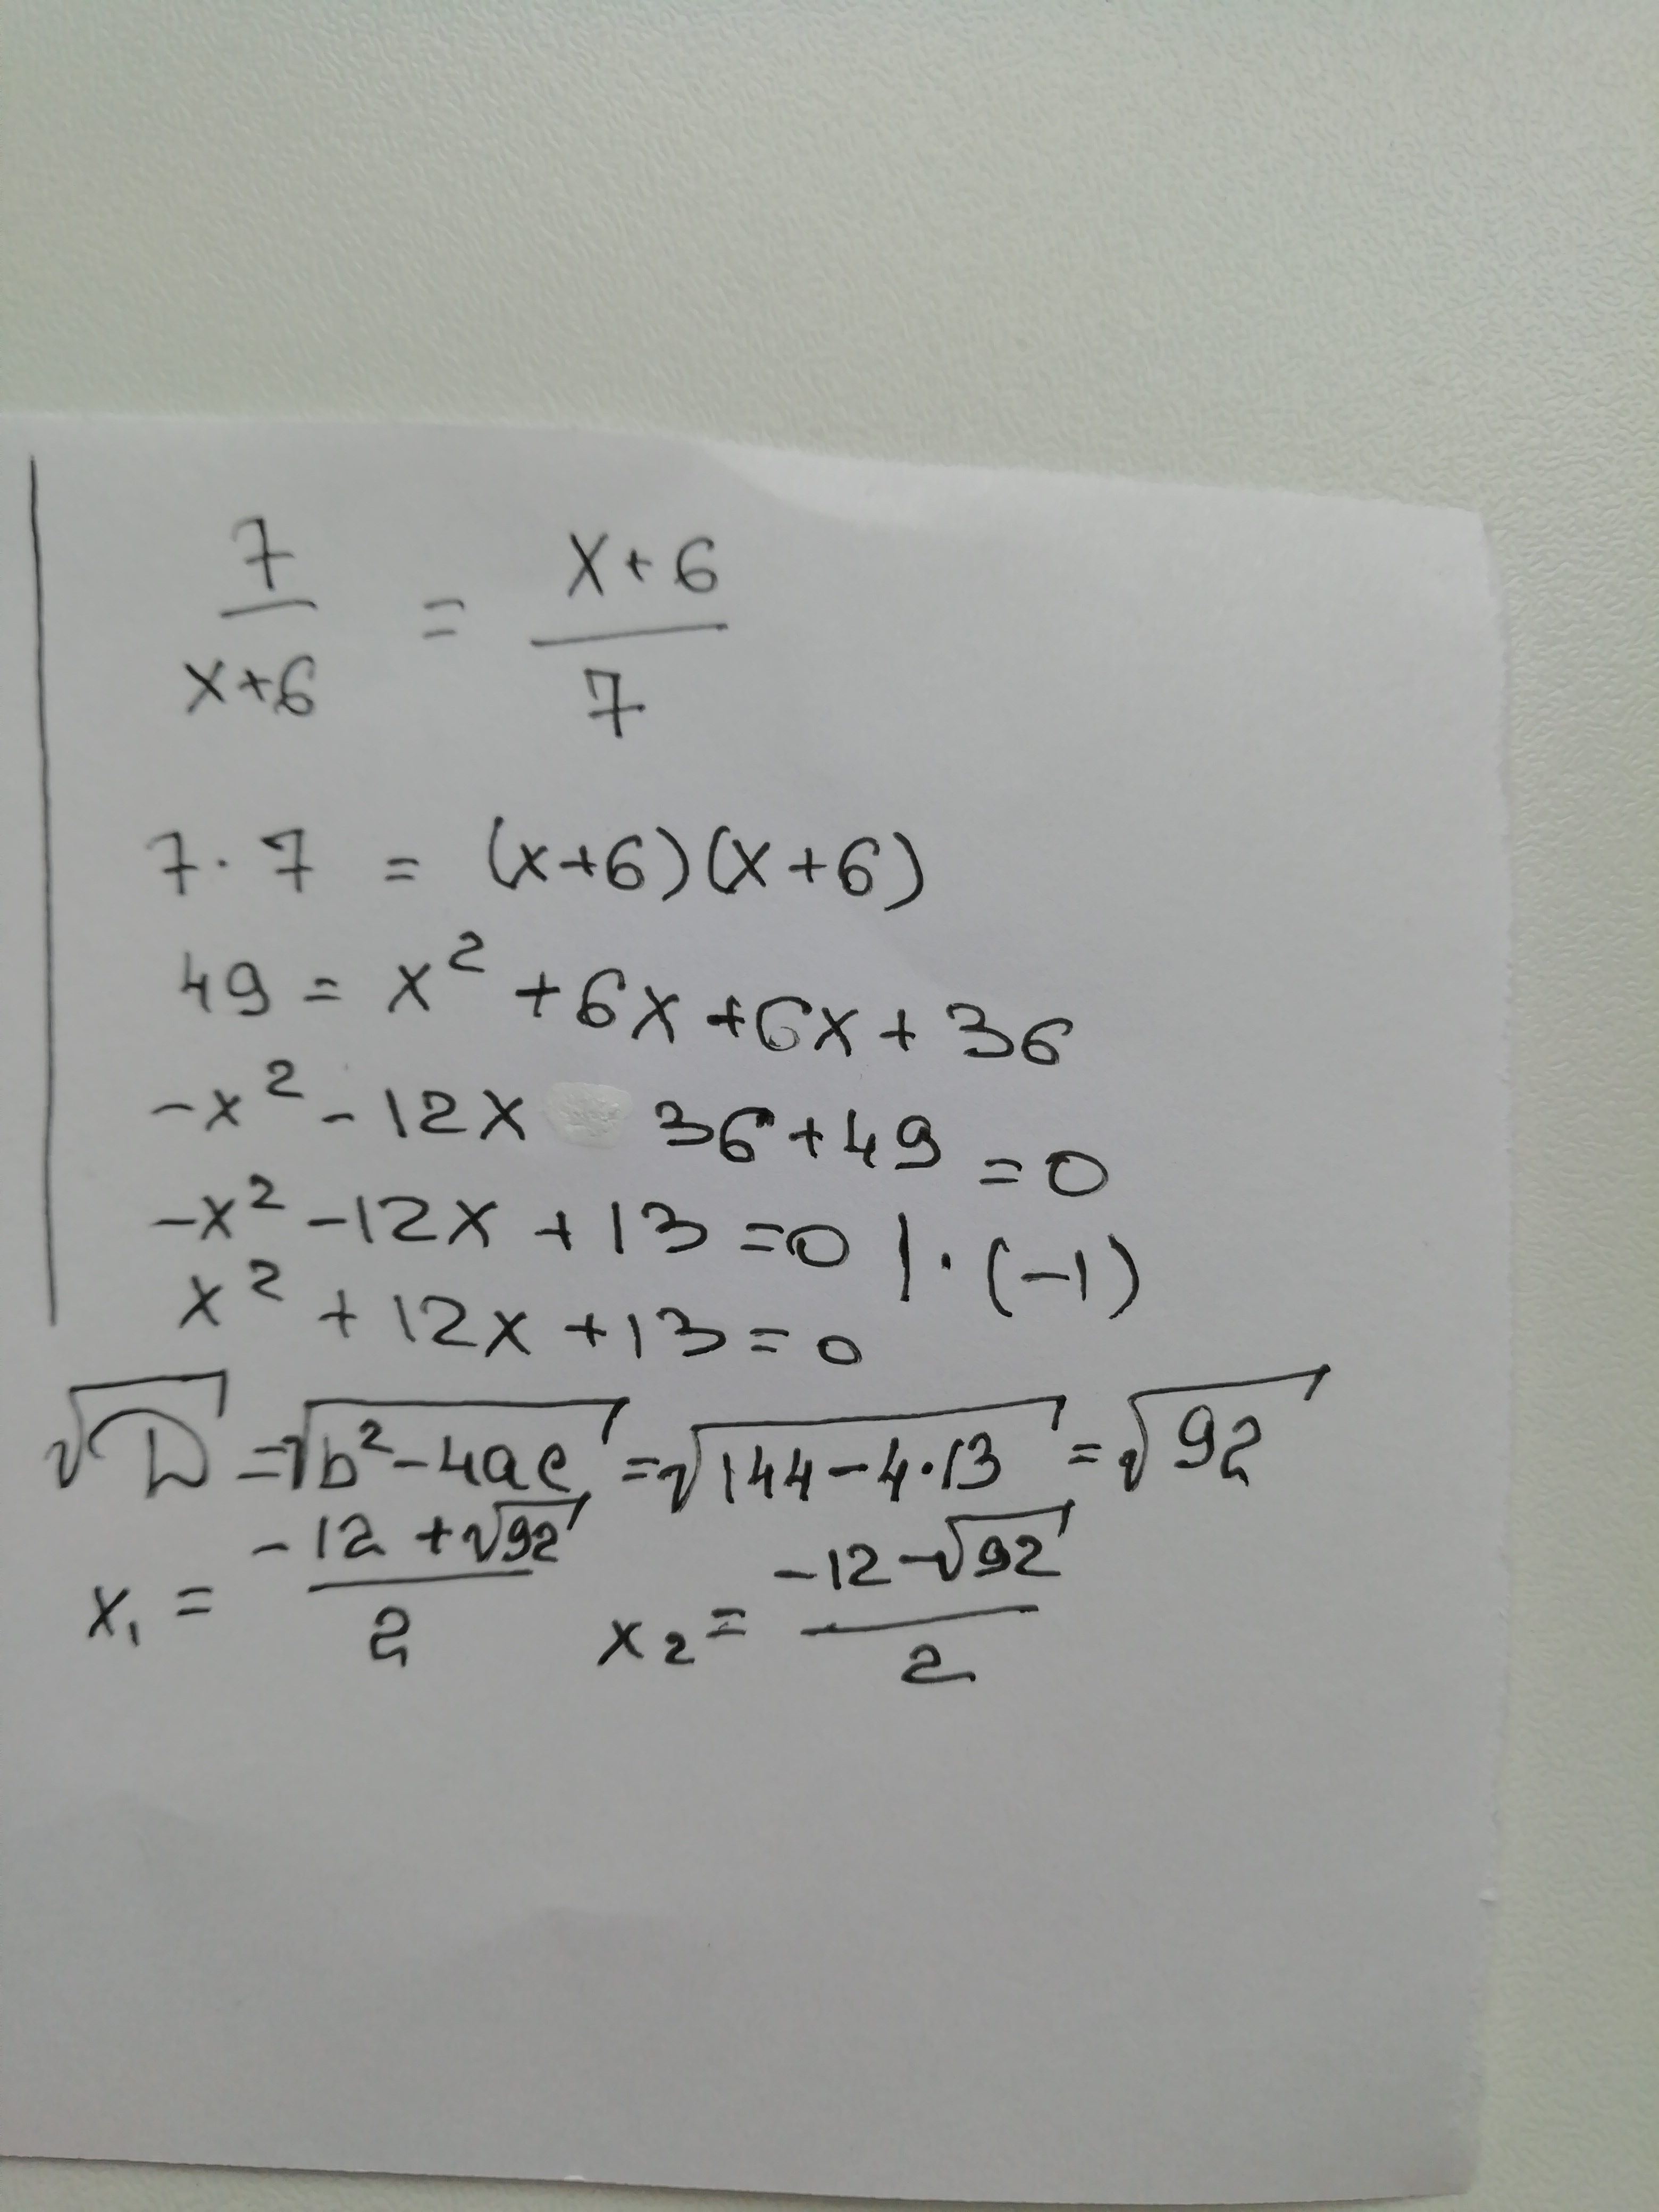 7/(x+6) = (x+6)/7
7·7 = (x+6)(x+6)
49 = x² + 6x + 6x + 36
-x² - 12x 36 + 49 = 0
-x² - 12x + 13 = 0 | · (-1)
x² + 12x + 13 = 0
√D = √(b² - 4ac) = √(144 - 4·13) = √92
x₁ = (-12 + √92)/2 x₂ = (-12 - √92)/2